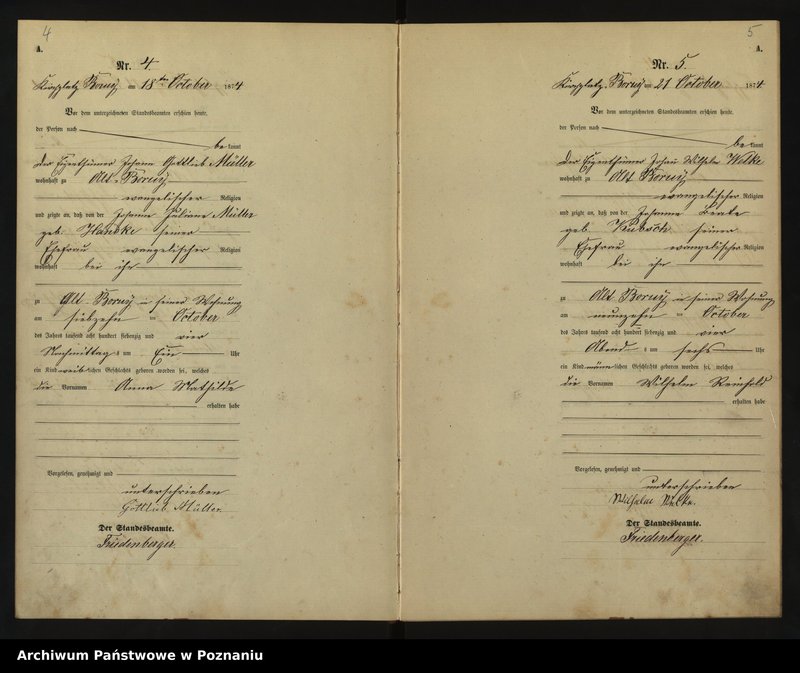 4
A.
Nr. 4.
Kirchplatz Boruy am 18ten October 1874
Vor dem unterzeichneten Standesbeamten erschien heute,
der Person nach
bekannt
der Eigenthümer Johann Gottlieb Müller
wohnhaft zu Alt-Boruy
evangelischer Religion
und zeigte an, daß von der Johanne Juliane Müller
geb. seiner
Ehefrau evangelischer Religion
wohnhaft bei ihm
zu Alt-Boruy in seiner Wohnung
am siebzehn ten October
des Jahres tausend acht hundert siebenzig und vier
Nachmittag s um Ein Uhr
ein Kind weiblichen Geschlechts geboren worden sei, welches
die Vornamen Anna Mathilde
erhalten habe
Vorgelesen, genehmigt und
unterschrieben
Gottlieb Müller
Der Standesbeamte.
Friedenberger.
5
A.
Nr. 5.
Kirchplatz-Boruy am 21 October 1874
Vor dem unterzeichneten Standesbeamten erschien heute,
der Person nach
bekannt
der Eigenthümer Johann Wilhelm Walke
wohnhaft zu Alt Boruy
evangelischer Religion
und zeigte an, daß von der Johanne Beate
geb. seiner
Ehefrau evangelischer Religion
wohnhaft bei ihm
zu Alt Boruy in seiner Wohnung
am neunzehn ten October
des Jahres tausend acht hundert siebenzig und vier
Abend s um sechs Uhr
ein Kind männlichen Geschlechts geboren worden sei, welches
die Vornamen Wilhelm Reinhold
erhalten habe
Vorgelesen, genehmigt und
unterschrieben
Wilhelm Walke.
Der Standesbeamte.
Friedenberger.
Archiwum Państwowe w Poznaniu